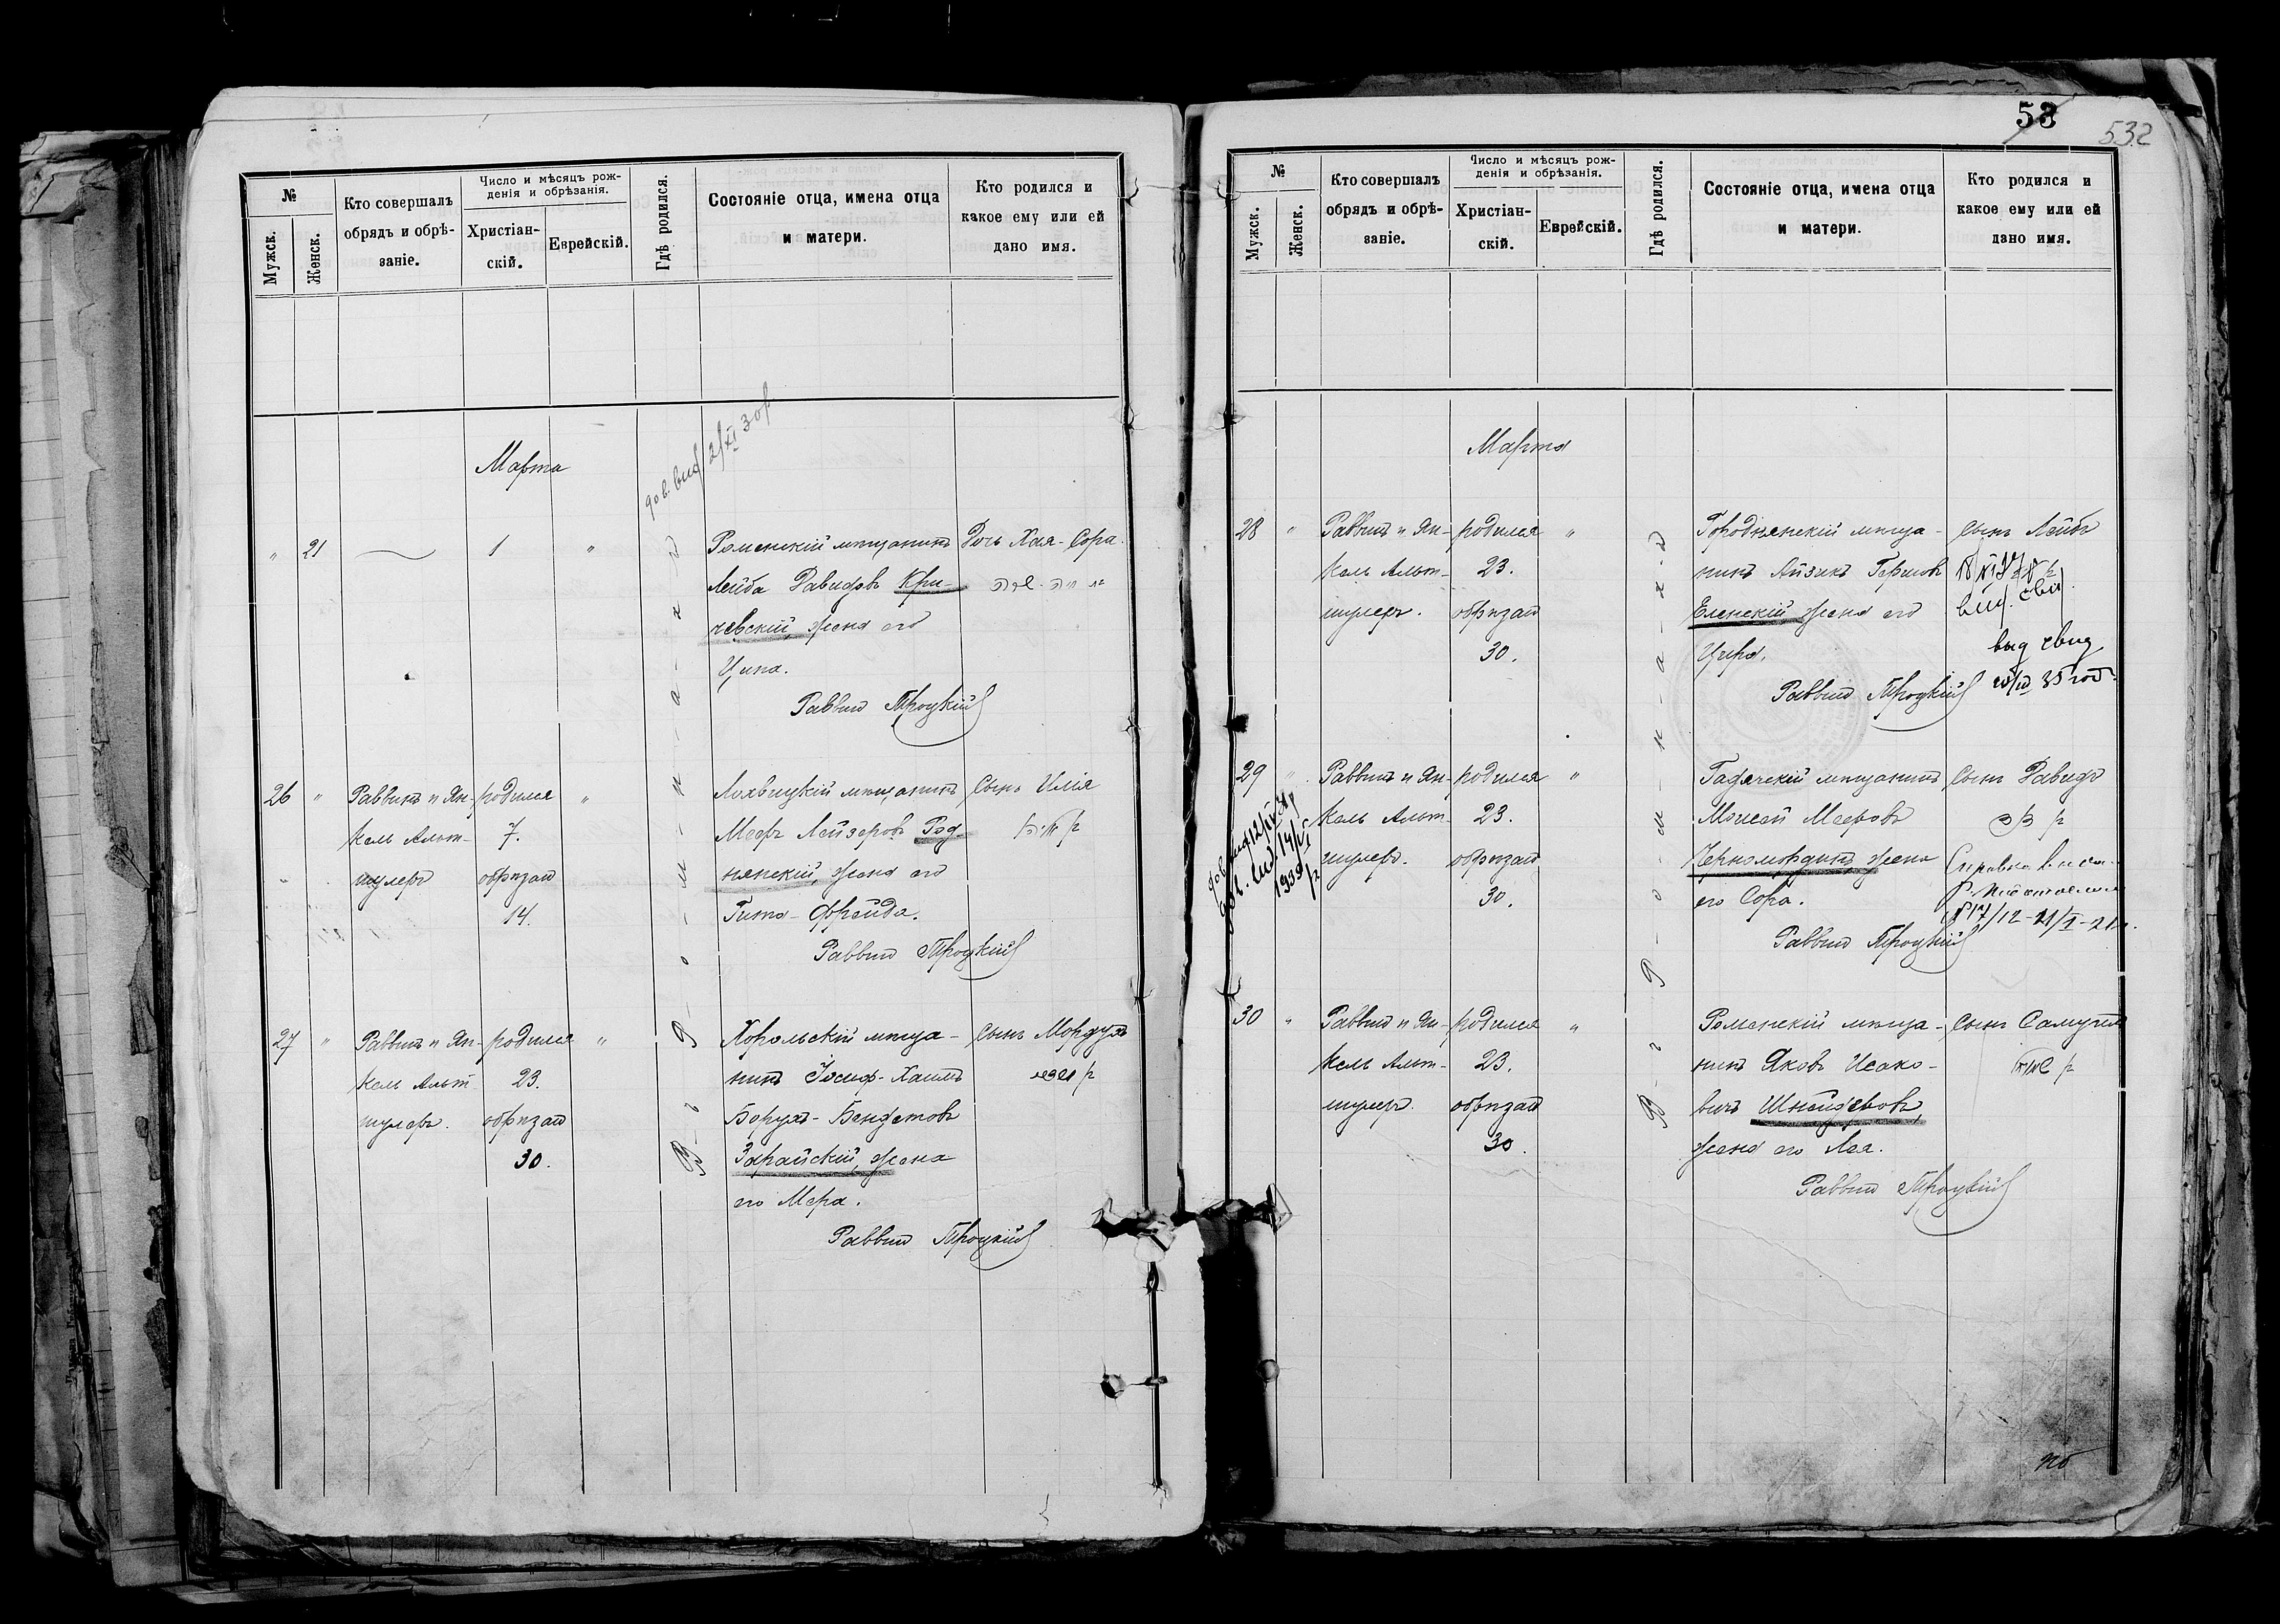 №
Мужск.
Женск.
Кто совершалъ
обрядъ и обрѣ-
заніе.
Число и мѣсяцъ рож-
денія и обрѣзанія.
Христіан-
скій.
Еврейскій.
Гдѣ родился.
Состояніе отца, имена отца
и матери.
Кто родился и
какое ему или ей
дано имя.
Марта
21
1
"
Роменскій мѣщанинъ
Лейба Давидовъ Кри-
чевскій, жена его
Ципа.
Раввинъ Троцкій
Дочь Хая-Сора
26
"
Раввинъ и Ян-
кель Альт-
шулеръ
родился
7.
обрѣзанъ
14.
"
Лохвицкій мѣщанинъ
Мееръ Лейзеровъ Род-
нянскій, жена его
Гита-Фрейда.
Раввинъ Троцкій
Сынъ Илія
27
"
Раввинъ и Ян-
кель Альт-
шулеръ.
родился
23.
обрѣзанъ
30.
"
Хорольскій мѣща-
нинъ Іосиф-Хаимъ
Борухъ-Бендетовъ
Зарайскій, жена
его Мера.
Раввинъ Троцкій
Сынъ Мордухъ
В г. Ромнахъ
53
532
№
Мужск.
Женск.
Кто совершалъ
обрядъ и обрѣ-
заніе.
Число и мѣсяцъ рож-
денія и обрѣзанія.
Христіан-
скій.
Еврейскій.
Гдѣ родился.
Состояніе отца, имена отца
и матери.
Кто родился и
какое ему или ей
дано имя.
Марта
28
"
Раввинъ и Ян-
кель Альт-
шулеръ.
родился
23.
обрѣзанъ
30.
"
Городнянскій мѣща-
нинъ Айзикъ Гершовъ
Еленскій, жена его
Цира.
Раввинъ Троцкій
Сынъ Лейба
вид. свид
выд свид
35 год
29
"
Раввинъ и Ян-
кель Альт-
шулеръ.
родился
23.
обрѣзанъ
30.
"
Гадячскій мѣщанинъ
Моисей Мееровъ
Черномордикъ, жена
его Сора.
Раввинъ Троцкій
Сынъ Давидъ
Справка
1939
30
"
Раввинъ и Ян-
кель Альт-
шулеръ.
родился
23.
обрѣзанъ
30.
"
Роменскій мѣща-
нинъ Яковъ Исако-
вичъ Шнейдеровъ,
жена его Лея.
Раввинъ Троцкій
Сынъ Самуилъ
В г. Ромнахъ